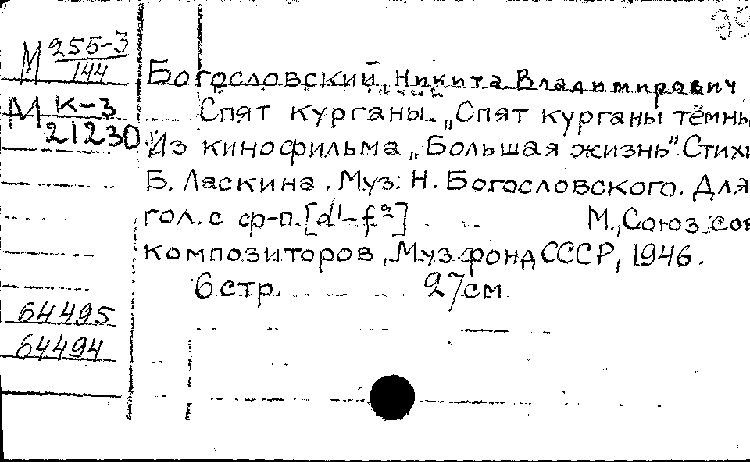 М 255-3
144
М К-3
21230
Богословский, Никита Владимирович
Спят курганы. „Спят курганы тёмны
Из кинофильма „Большая жизнь". Стихи
Б. Ласкина. Муз. Н. Богословского. Для
гол. с ф-п. [d¹-f²] М., Союз сов
композиторов, Музфонд СССР, 1946.
6 стр. 27 см.
64495
64494